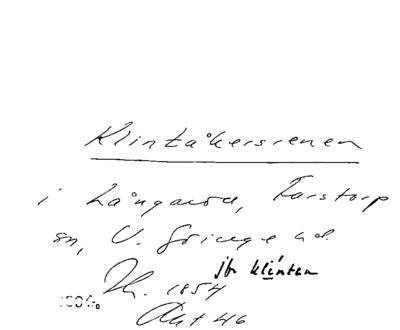 Klintåkersrenen
i Långaröd, Farstorp
sn, V. Göinge hd.
jfr klinten
Th. 1854
Akt 46